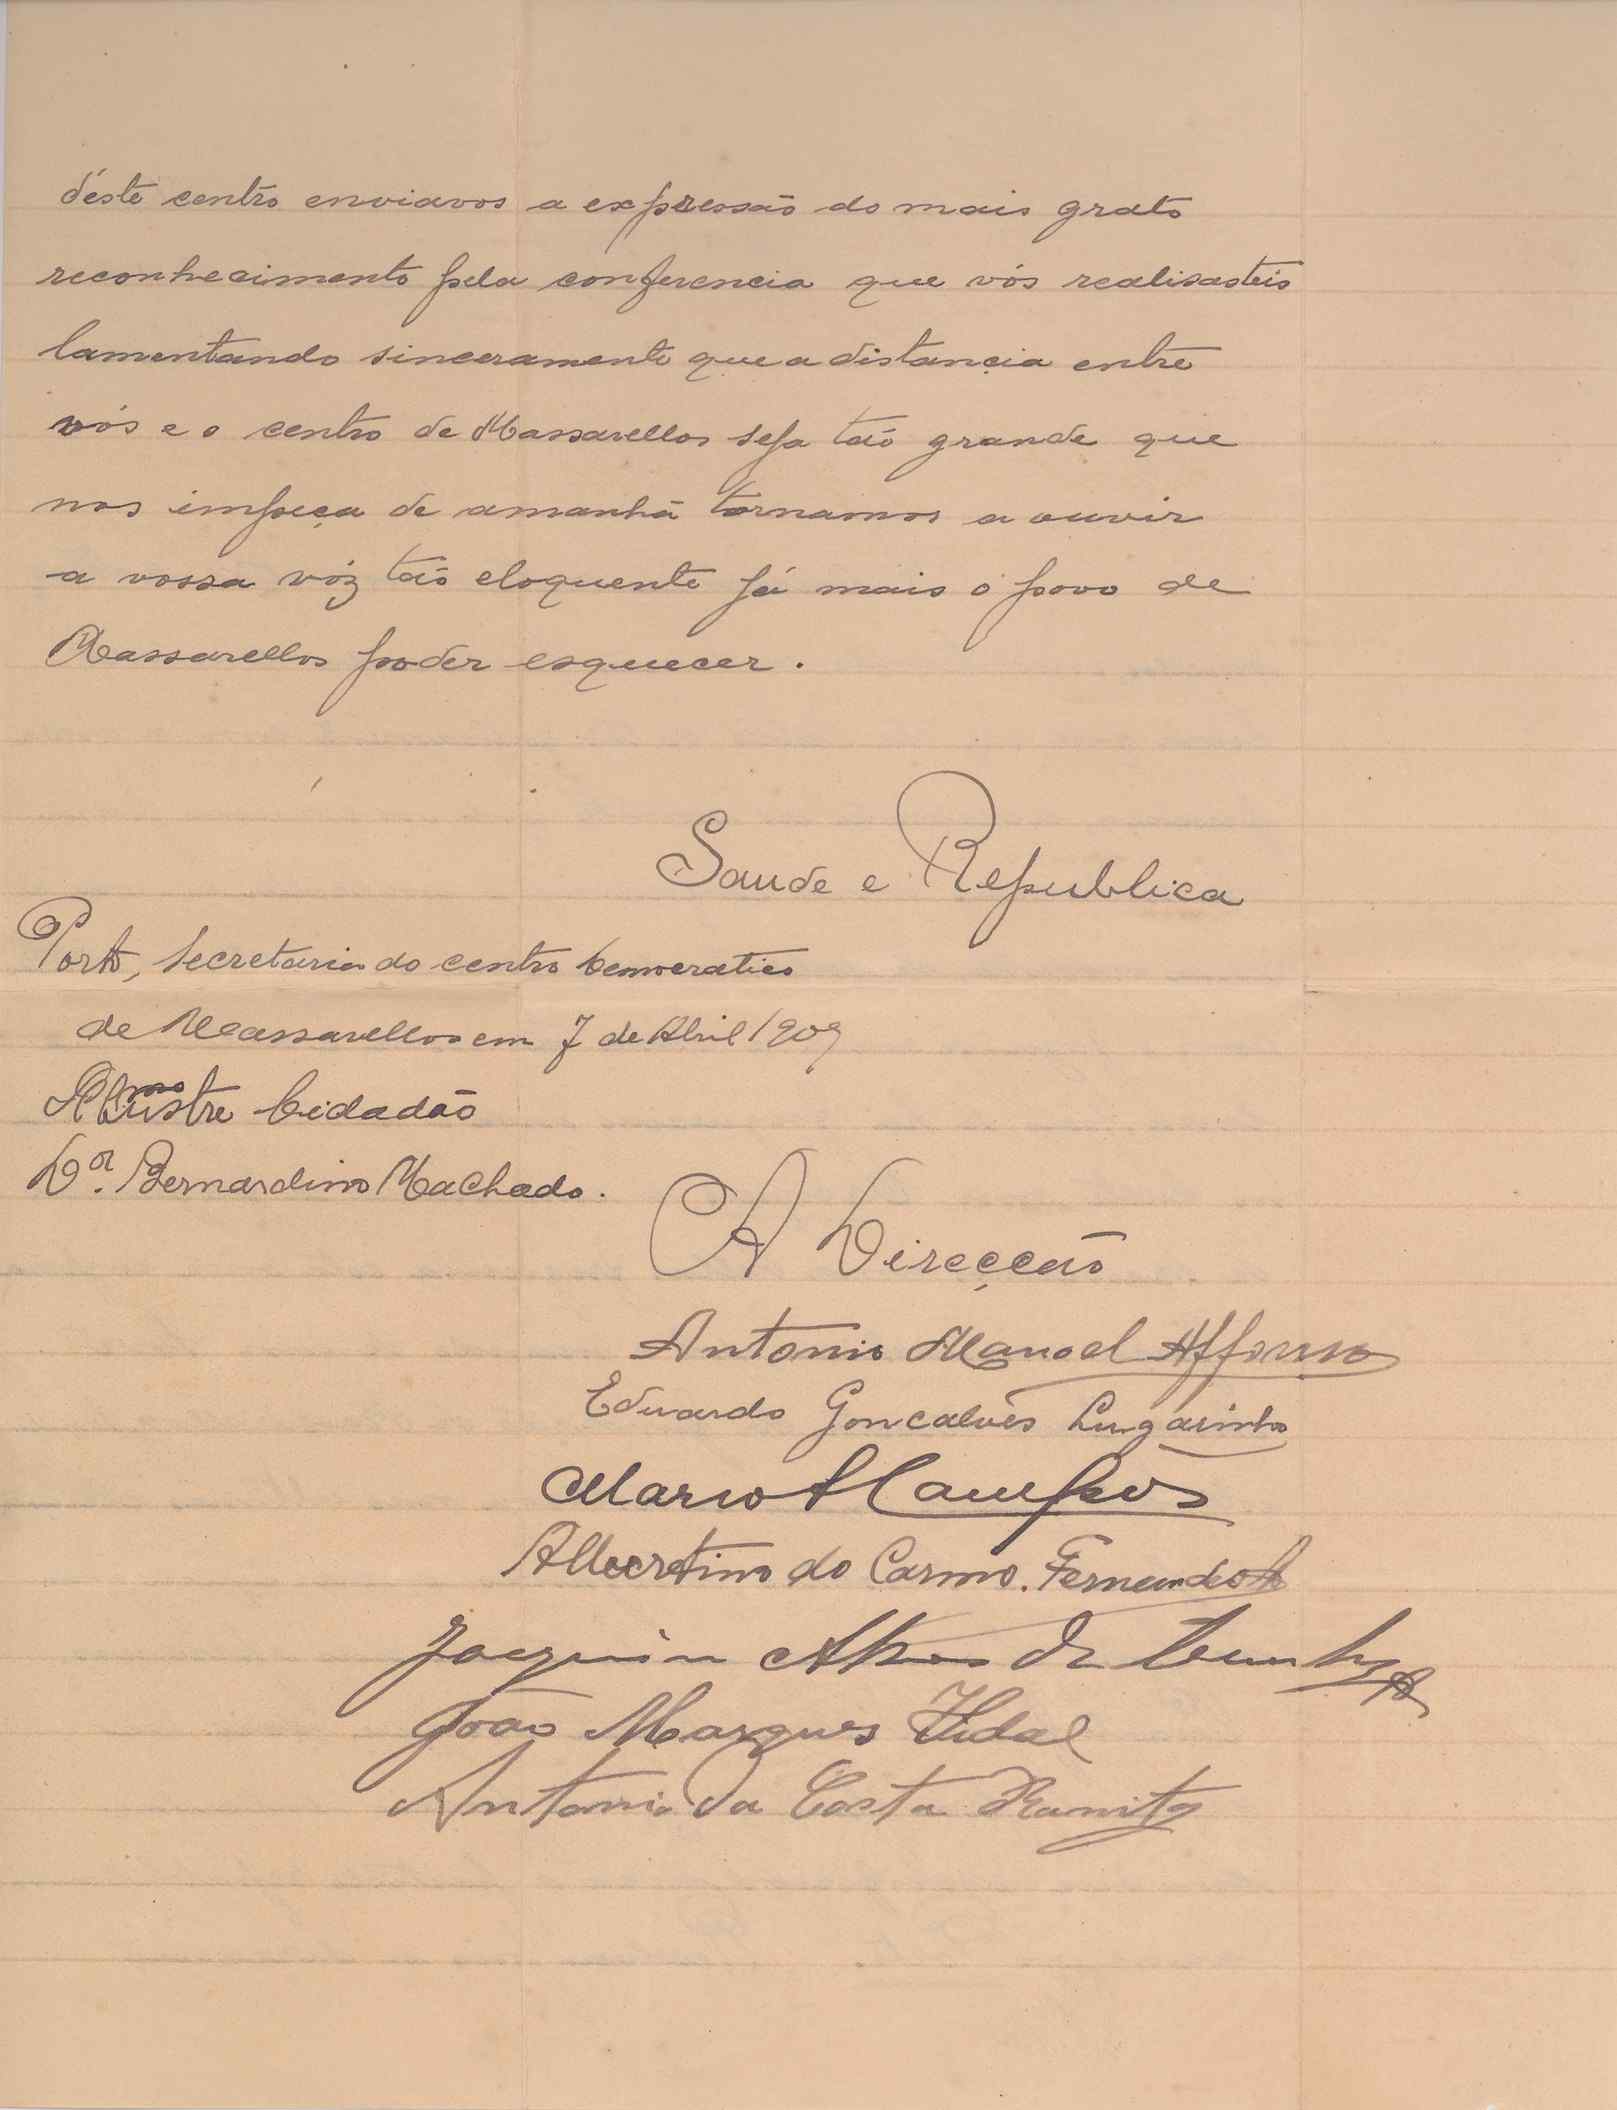 déste centro enviavos a expressão do mais grato
reconhecimento pela conferencia que vós realisasteis
lamentando sinceramente que a distancia entre
vós e o centro de Massarellos seja tão grande que
nos impeça de amanhã tornamos a ouvir
a vossa vóz tão eloquente já mais o povo de
Massarellos poder esquecer.
Saude e Republica
Porto, Secretaria do centro Democratico
de Massarellos em 7 de Abril 1909
Illustre Cidadão
Dor. Bernardino Machado.
A Direcção
Antonio Manoel Affonso
Eduardo Goncalves Lugarinho
Mario A Campos
Albertino do Carmo. Fernandes
Joaquim Alves da Cunha
João Marques Vidal
Antonio da Costa